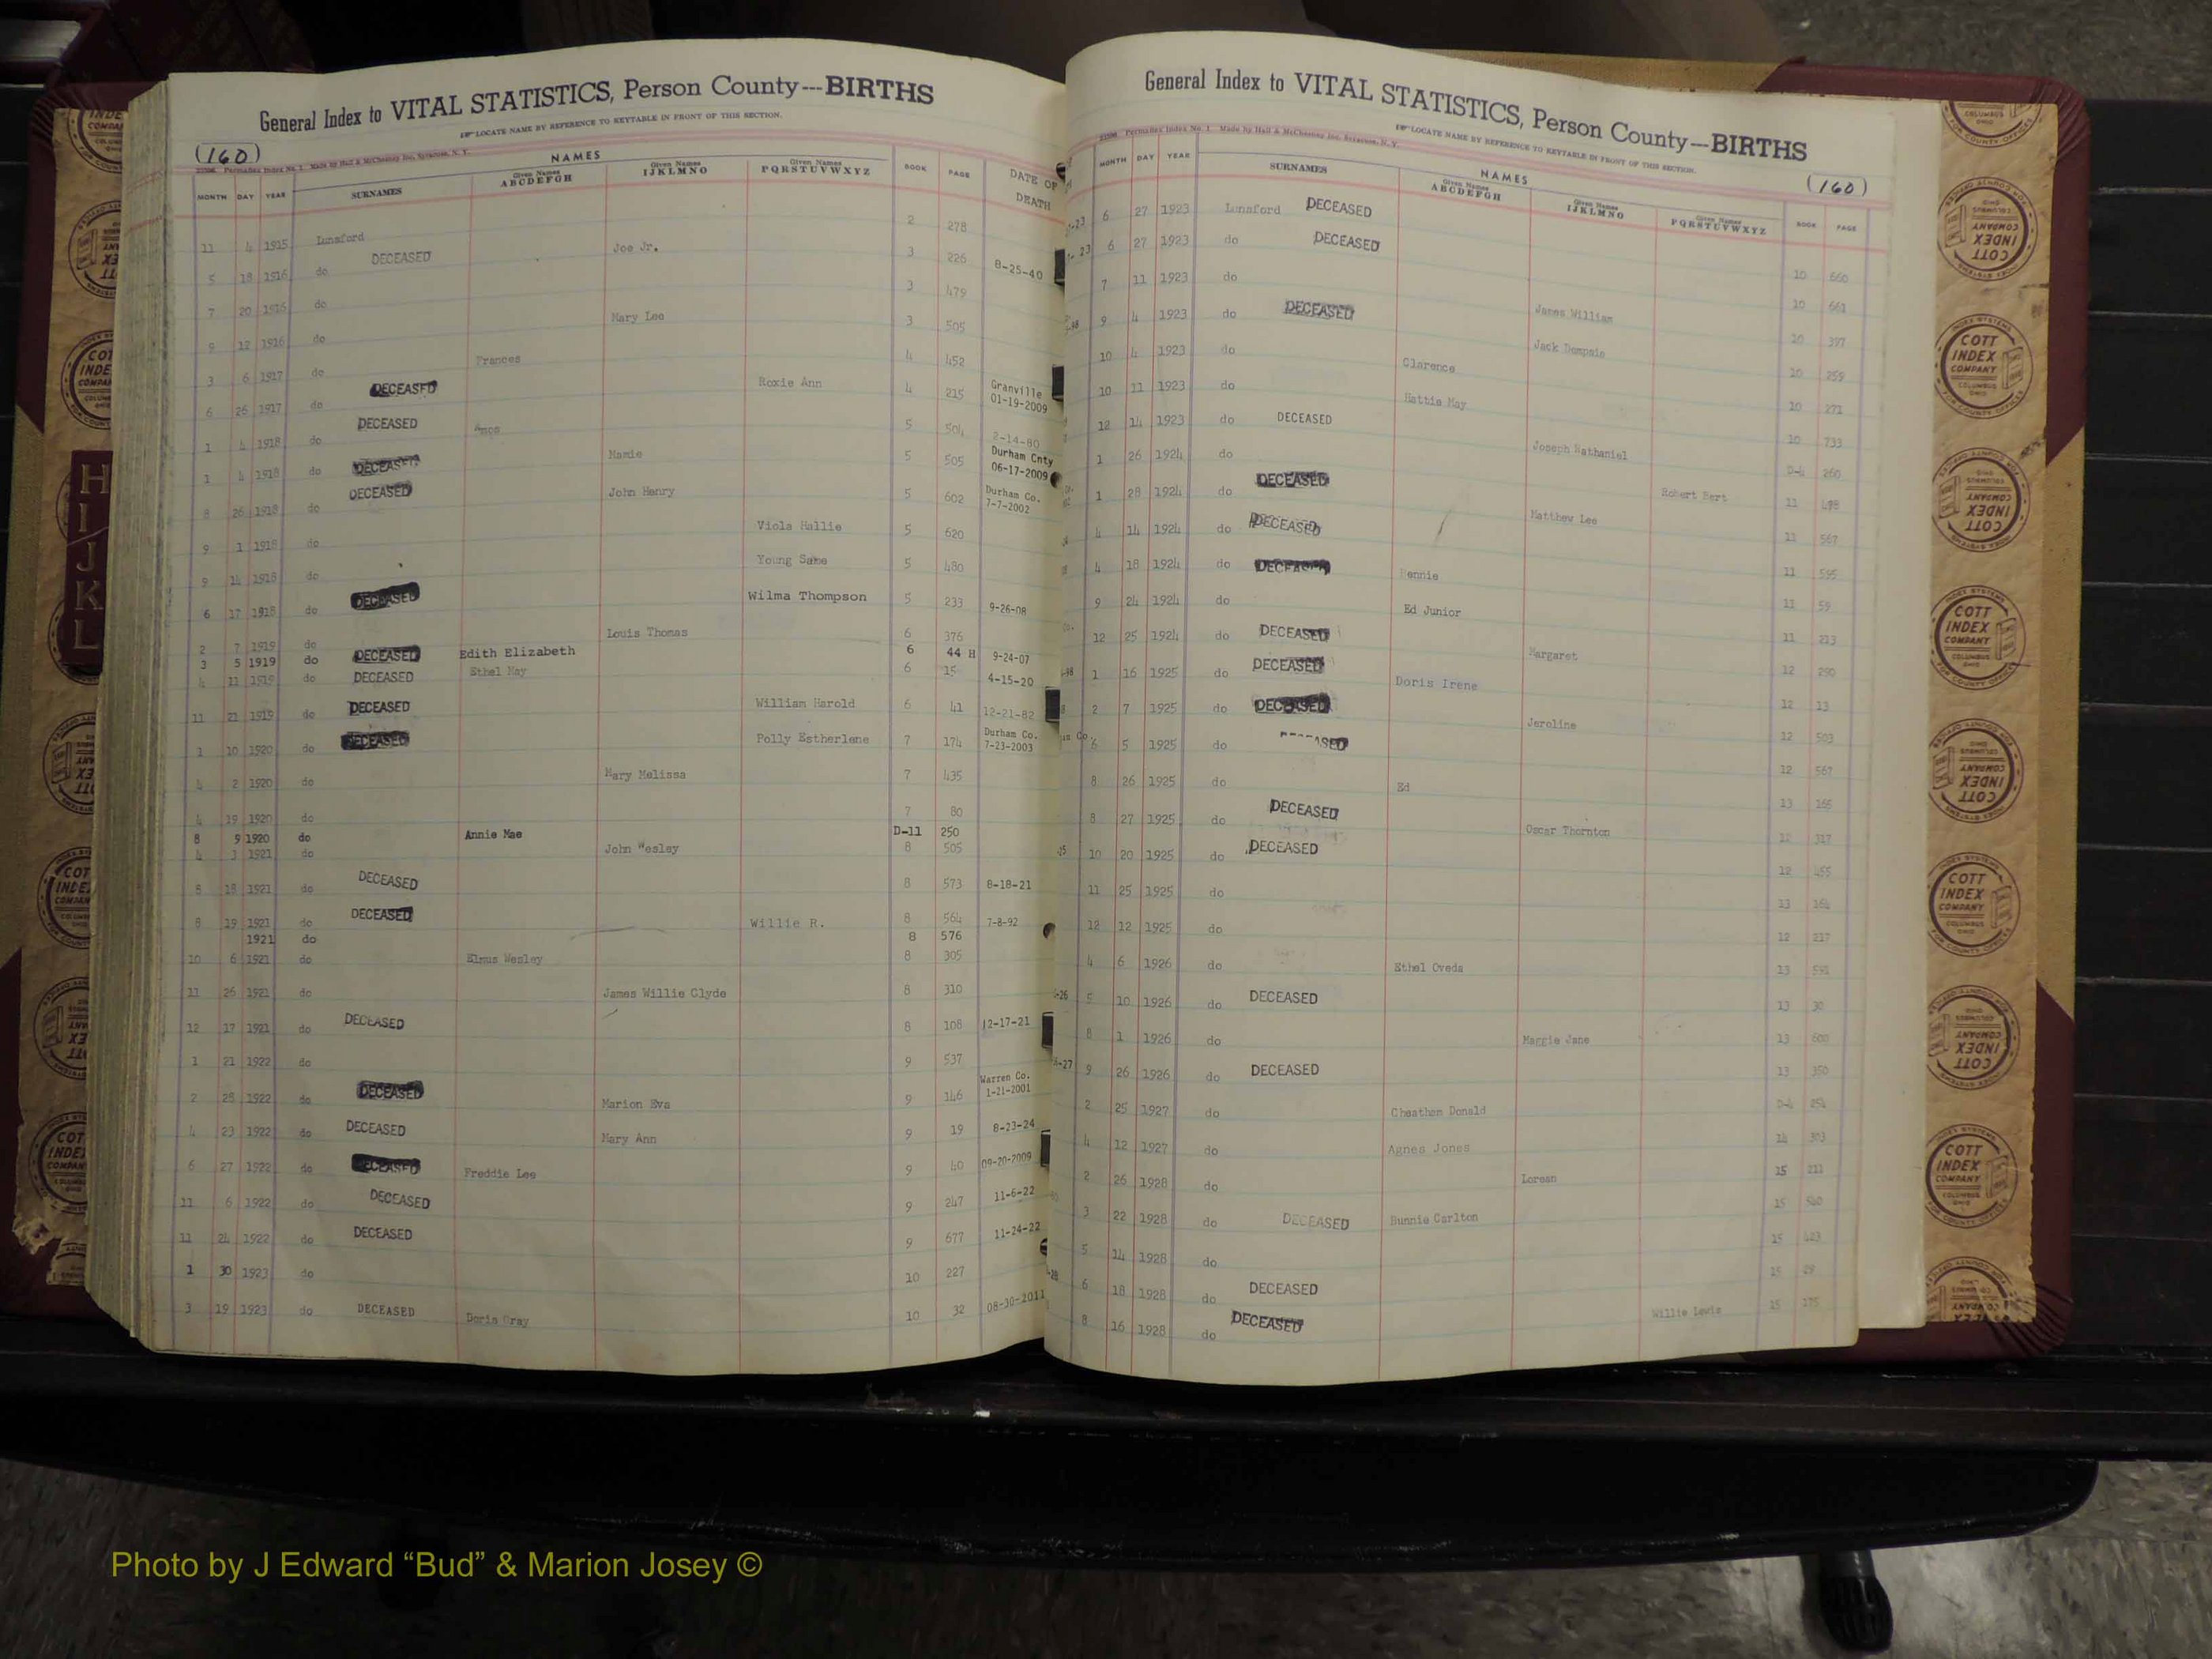 General Index to VITAL STATISTICS, Person County---BIRTHS
LOCATE NAME BY REFERENCE TO KEYTABLE IN FRONT OF THIS SECTION.
(160)
NAMES
MONTH DAY YEAR SURNAMES Given Names ABCDEFGH Given Names IJKLMNO Given Names PQRSTUVWXYZ BOOK PAGE DATE OF DEATH
11 4 1915 Lunsford 2 278
5 18 1916 do DECEASED Joe Jr. 3 226 8-25-40
7 20 1916 do 3 479
9 12 1916 do Mary Lee 3 505
3 6 1917 do Frances 4 452
6 26 1917 do DECEASED Roxie Ann 4 215 Granville 01-19-2009
1 4 1918 do DECEASED Amos 5 504 2-14-80
1 4 1918 do DECEASED Mamie 5 505 Durham Cnty 06-17-2009
8 26 1918 do DECEASED John Henry 5 602 Durham Co. 7-7-2002
9 1 1918 do Viola Hallie 5 620
9 14 1918 do Young Same 5 480
6 17 1918 do DECEASED Wilma Thompson 5 233 9-26-08
2 7 1919 do Louis Thomas 6 376
3 5 1919 do DECEASED Edith Elizabeth 6 44 H 9-24-07
4 11 1919 do DECEASED Ethel May 6 15 4-15-20
11 21 1919 do DECEASED William Harold 6 41 12-21-82
1 10 1920 do DECEASED Polly Estherlene 7 174 Durham Co. 7-23-2003
4 2 1920 do Mary Melissa 7 435
4 19 1920 do 7 80
8 9 1920 do Annie Mae D-11 250
4 3 1921 do John Wesley 8 505
8 18 1921 do DECEASED 8 573 8-18-21
8 19 1921 do DECEASED Willie R. 8 564 7-8-92
1921 do 8 576
10 6 1921 do Elmus Wesley 8 305
11 26 1921 do James Willie Clyde 8 310
12 17 1921 do DECEASED 8 108 12-17-21
1 21 1922 do 9 537
2 28 1922 do DECEASED Marion Eva 9 146 Warren Co. 1-21-2001
4 23 1922 do DECEASED Mary Ann 9 19 8-23-24
6 27 1922 do DECEASED Freddie Lee 9 40 09-20-2009
11 6 1922 do DECEASED 9 247 11-6-22
11 24 1922 do DECEASED 9 677 11-24-22
1 30 1923 do 10 227
3 19 1923 do DECEASED Doris Gray 10 32 08-30-2011
General Index to VITAL STATISTICS, Person County---BIRTHS
LOCATE NAME BY REFERENCE TO KEYTABLE IN FRONT OF THIS SECTION.
(160)
NAMES
MONTH DAY YEAR SURNAMES Given Names ABCDEFGH Given Names IJKLMNO Given Names PQRSTUVWXYZ BOOK PAGE
6 27 1923 Lunsford DECEASED 10 660
6 27 1923 do DECEASED 10 661
7 11 1923 do James William 10 397
9 4 1923 do DECEASED Jack Dempsie 10 259
10 4 1923 do Clarence 10 271
10 11 1923 do Hattie May 10 733
12 14 1923 do DECEASED Joseph Nathaniel D-4 260
1 26 1924 do Robert Bert 11 498
1 28 1924 do DECEASED Matthew Lee 11 567
4 14 1924 do DECEASED 11 595
4 18 1924 do DECEASED Bennie 11 59
9 24 1924 do Ed Junior 11 213
12 25 1924 do DECEASED Margaret 12 290
1 16 1925 do DECEASED Doris Irene 12 13
2 7 1925 do DECEASED Jeroline 12 503
6 5 1925 do 12 567
8 26 1925 do Ed 13 165
8 27 1925 do DECEASED Oscar Thornton 12 317
10 20 1925 do DECEASED 12 455
11 25 1925 do 13 164
12 12 1925 do 12 217
4 6 1926 do Ethel Oveda 13 591
5 10 1926 do DECEASED 13 30
8 1 1926 do Maggie Jane 13 600
9 26 1926 do DECEASED 13 350
2 25 1927 do Cheathan Donald D-4 254
4 12 1927 do Agnes Jones 14 303
2 26 1928 do Lorean 15 211
3 22 1928 do DECEASED Bunnie Carlton 15 540
5 14 1928 do 15 423
6 18 1928 do DECEASED 15 29
8 16 1928 do DECEASED Willie Lewis 15 175
H I J K L
COTT INDEX COMPANY
COLUMBUS OHIO
INDEX SYSTEMS FOR COUNTY OFFICES
Photo by J Edward “Bud” & Marion Josey ©